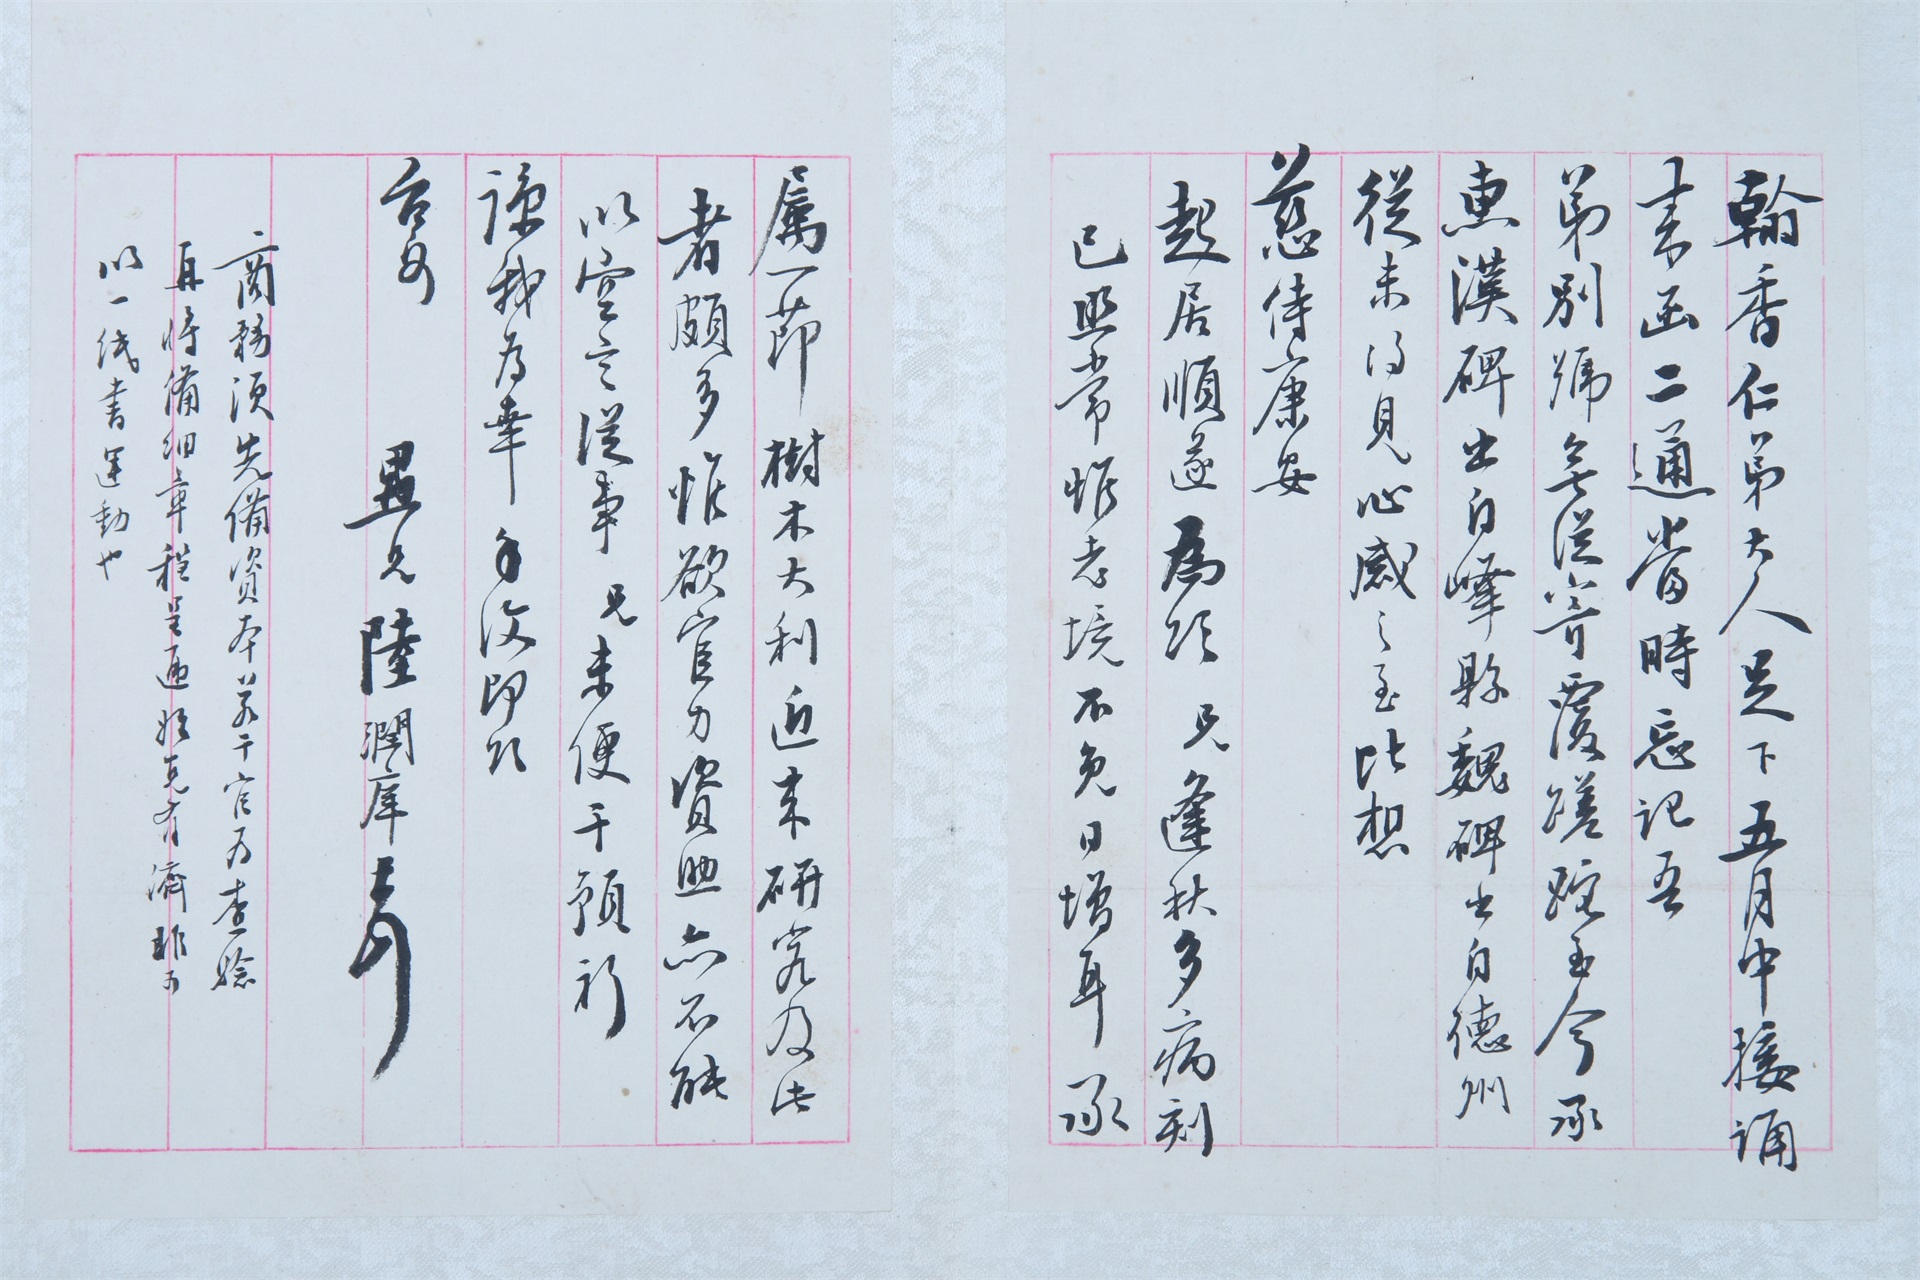 翰香仁弟大人足下五月中接誦
来函二通當時忘記吾
弟別號無從寄覆蹉跎至今承
惠漢碑出自嶧縣魏碑出自德州
從未得見心感之至比想
慈侍康安
起居順遂為頌兄逢秋多病刻
已照常惟老境不免日增耳承
屬一節樹木大利近来研究及此
者頗多惟欲官力資助亦不能
以空言從事兄未便干預祈
諒我為幸手復即頌
台安 愚兄陸潤庠頓首
商務須先備資本若干官為查驗
再將備細章程呈遞始克有濟非可
以一紙書運動也